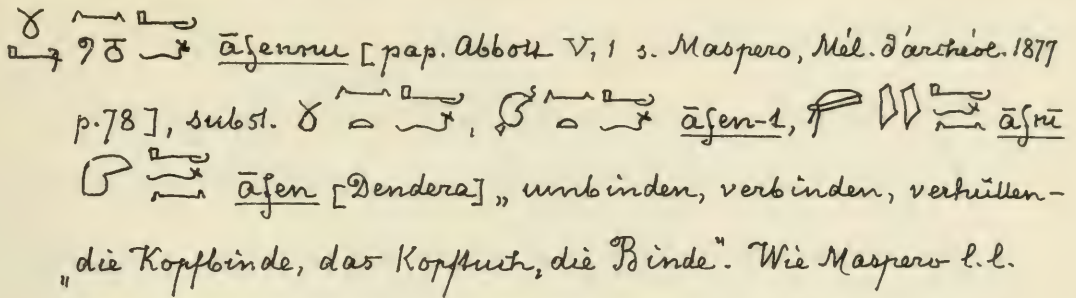 āfennu [pap. Abbott V, 1 s. Maspero, Mél. d'archéol. 1877
p. 78], subst. , āfen-t, āfnī
āfen [Dendera] „umbinden, verbinden, verhüllen-
„die Kopfbinde, das Kopftuch, die Binde". Wie Maspero l.l.